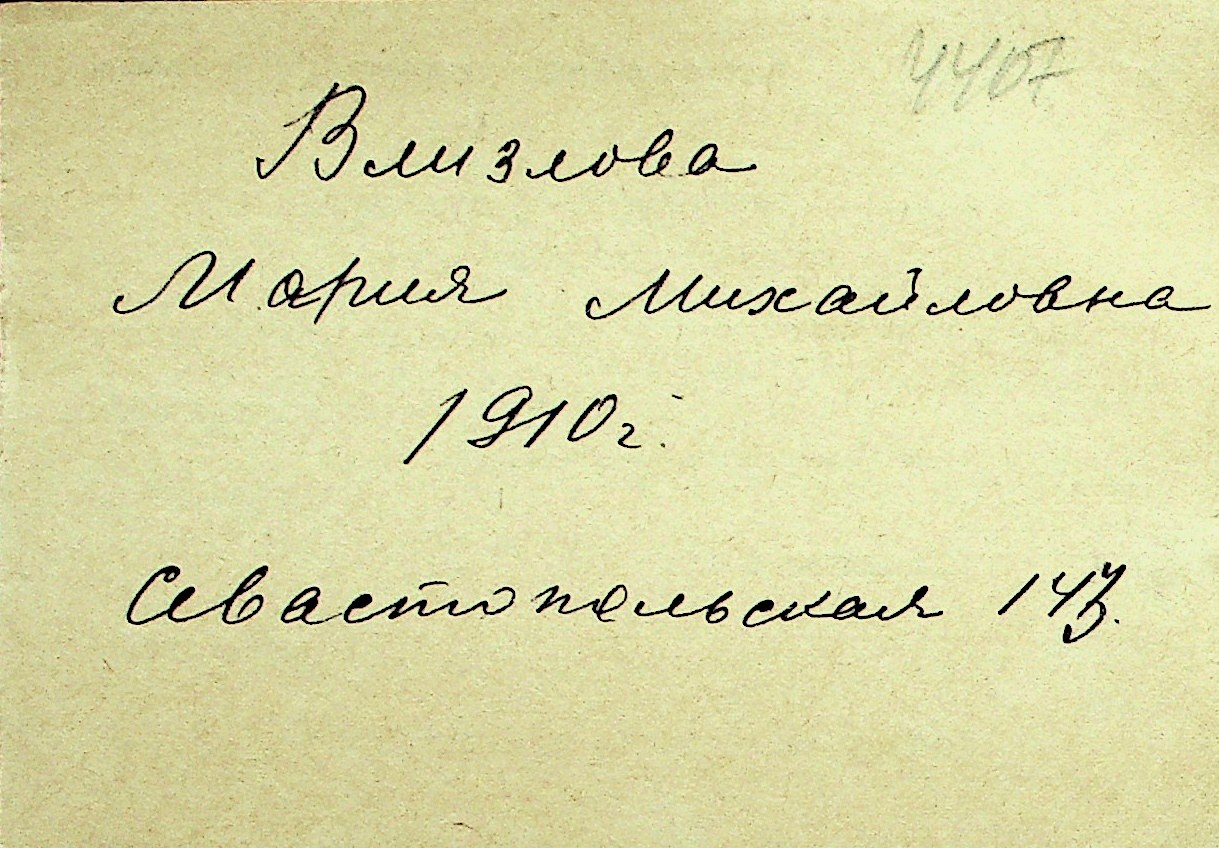 4407
Влизлова
Мария Михайловна
1910 г.
Севастопольская 143.